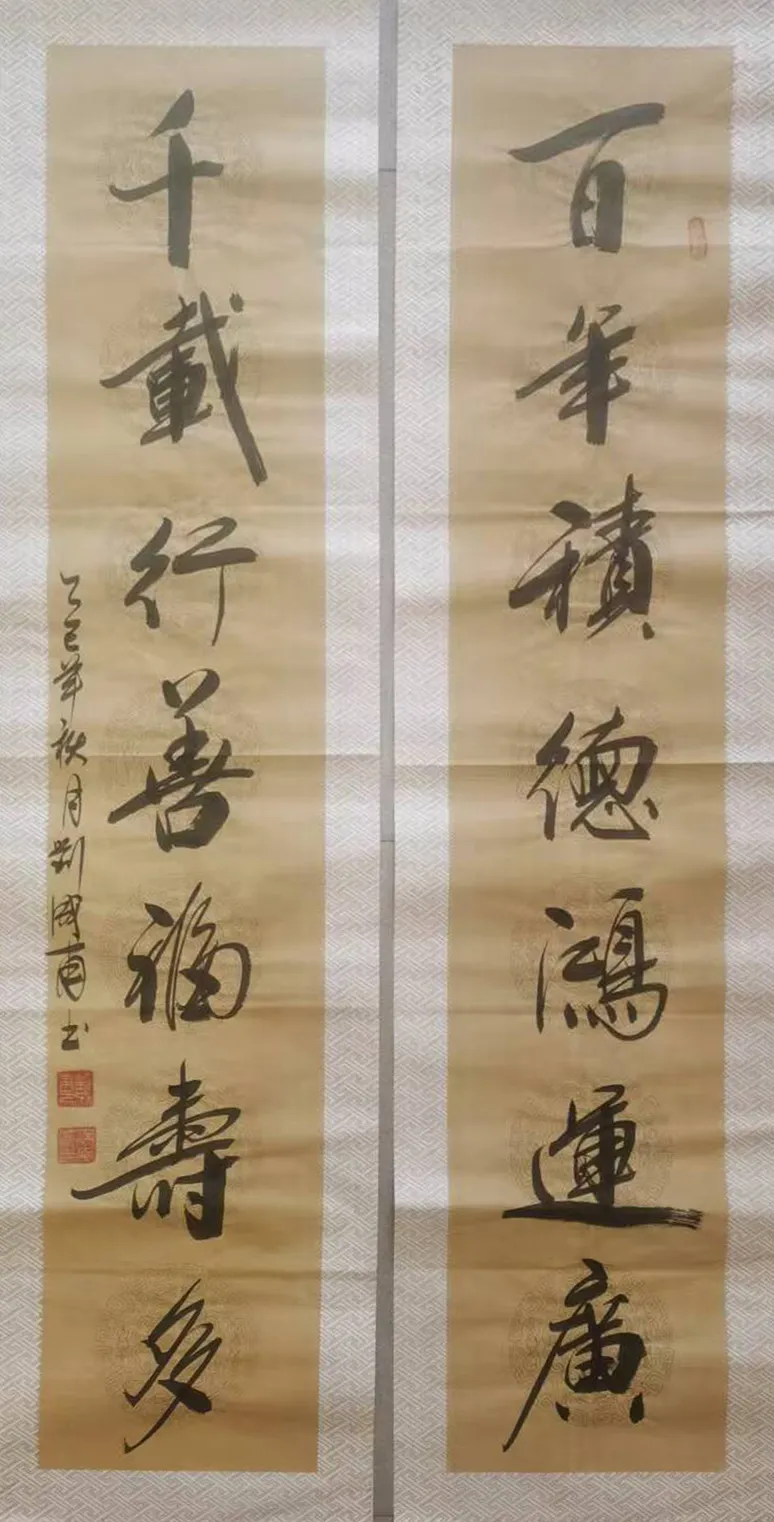 百年積德鴻運廣
千載行善福壽多
乙巳年秋月劉國南书